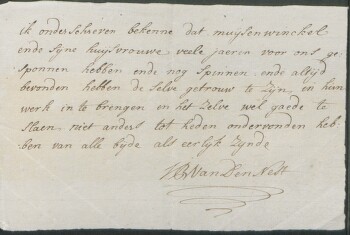 ik onderschreven bekenne dat muijsenwinckel
ende syne huijsvrouwe veele jaeren voor ons ge-
sponnen hebben ende nog spinnen, ende altijd
bevonden hebben de selve getrouw te zyn, en hun
werk in te brengen en het zelve wel gaede te
slaen, niet anders tot heden ondervonden heb-
ben van alle byde als eerlyk zynde
VanDenNest